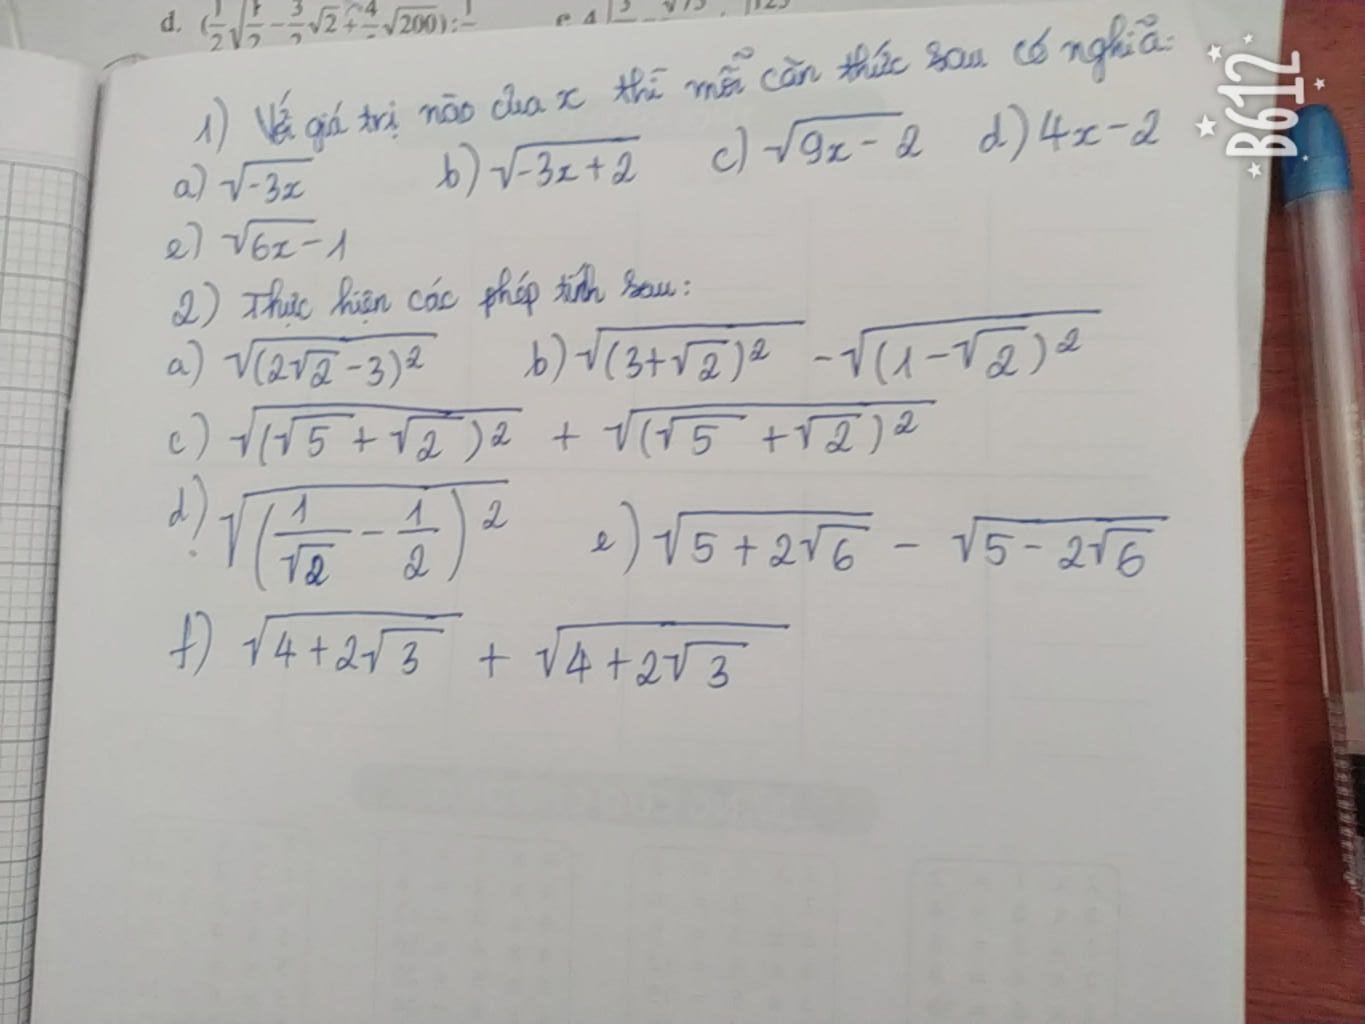 d. (1/2 √1/2 − 3/2 √2 + 4/ √200) : 1/
1) Với giá trị nào của x thì mỗi căn thức sau có nghĩa:
a) √(-3x) b) √(-3x+2) c) √(9x-2) d) 4x-2
e) √(6x)-1
2) Thực hiện các phép tính sau:
a) √((2√2-3)²) b) √((3+√2)²) - √((1-√2)²)
c) √((√5+√2)²) + √((√5+√2)²)
d) √((1/√2 - 1/2)²) e) √(5+2√6) - √(5-2√6)
f) √(4+2√3) + √(4+2√3)
B612